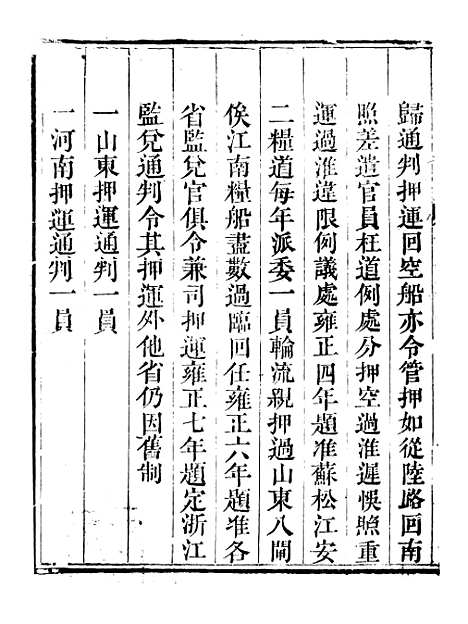 歸通判押運回空船亦令管押如從陸路回南
照差遣官員枉道例處分押空過淮遲悞照重
運過淮違限例議處雍正四年題准蘇松江安
二糧道每年派委一員輪流親押過山東八閘
俟江南糧船盡數過臨回任雍正六年題准各
省監兌官俱令兼司押運雍正七年題定浙江
監兌通判令其押運外他省仍因舊制
一山東押運通判一員
一河南押運通判一員